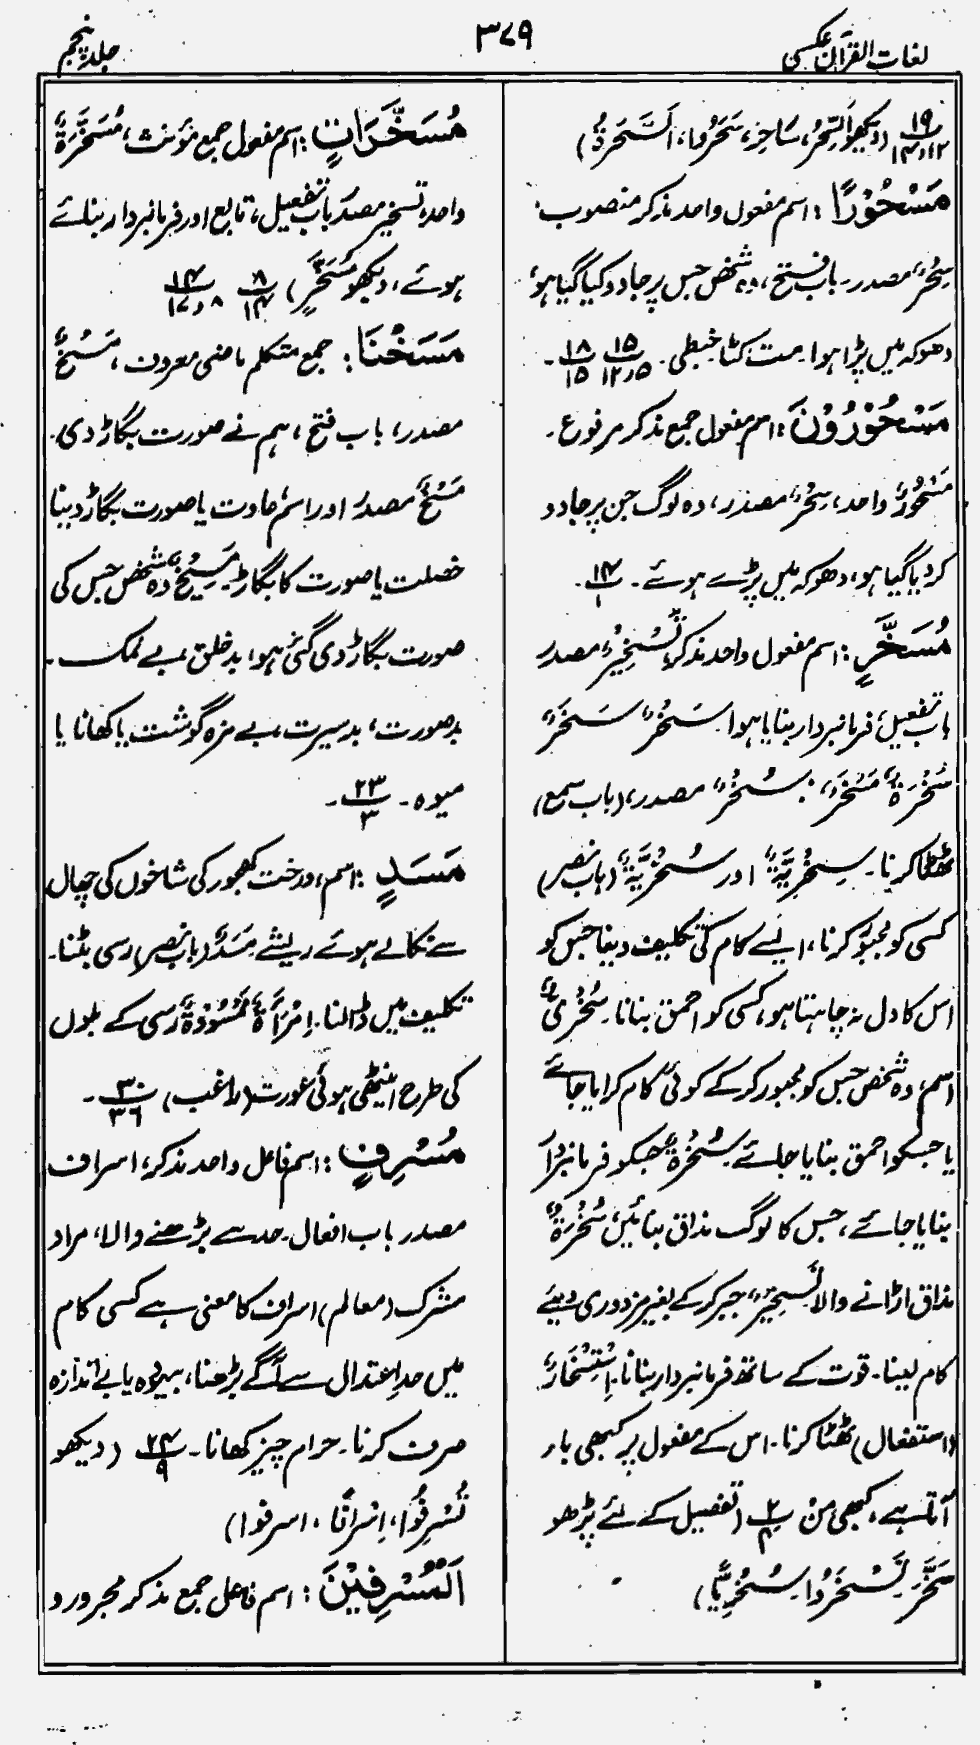 لغات القرآن عکسی
۳۷۹
جلد پنجم
۱۹ / ۱۳٫۱۲ (دیکھو اَلسِّحْرُ، سَاحِرٌ، سَحَرُوا، اَلسَّحَرَةُ)
مَسْحُوْرًا: اسم مفعول واحد مذکر منصوب
سِحْرٌ مصدر۔ باب فتح، وہ شخص جس پر جادو کیا گیا ہو
دھوکہ میں پڑا ہوا۔ مت کٹا خبطی۔ ۱۵ / ۱۲٫۵ ۱۸ / ۱۵۔
مَسْحُوْرُوْنَ: اسم مفعول جمع مذکر مرفوع۔
مَسْحُوْرٌ واحد، سِحْرٌ مصدر، وہ لوگ جن پر جادو
کر دیا گیا ہو، دھوکہ میں پڑے ہوئے۔ ۱۴ / ۱۔
مُسَخَّرٍ: اسم مفعول واحد مذکر، تَسْخِیْرٌ مصدر
باب تفعیل، فرمانبردار بنایا ہوا۔ سَخْرٌ سَخَرٌ
سُخْرَةٌ مَسْخَرٌ سُخْرٌ مصدر، (باب سمع)
ٹھٹھا کرنا۔ سِخْرِیَّةٌ اور سُخْرِیَّةٌ (باب نصر)
کسی کو مجبور کرنا، ایسے کام کی تکلیف دینا جس کو
اس کا دل نہ چاہتا ہو، کسی کو احمق بنانا۔ سُخْرِیٌّ
اسم، وہ شخص جس کو مجبور کر کے کوئی کام کرایا جائے
یا جسکو احمق بنایا جائے سُخْرَةٌ جسکو فرمانبردار
بنایا جائے، جس کا لوگ مذاق بنائیں سُخَرَةٌ
مذاق اڑانے والا تَسْخِیْرٌ، جبر کر کے بغیر مزدوری دیئے
کام لینا۔ قوت کے ساتھ فرمانبردار بنانا۔ اِسْتِسْخَارٌ
(استفعال) ٹھٹا کرنا۔ اس کے مفعول پر کبھی بار
آتا ہے، کبھی من ۲ (تفصیل کے لئے پڑھو
سَخَّرَ۔ تَسْخَرُوا سُخْرِیًّا)
مُسَخَّرَاتٍ: اسم مفعول جمع مؤنث، مُسَخَّرَةٌ
واحد، تسخیر مصدر باب تفعیل، تابع اور فرمانبردار بنائے
ہوئے، دیکھو مُسَخَّرٍ) ۸ / ۱۴ ۱۴ / ۸٫۱۷
مَسَخْنَا: جمع متکلم ماضی معروف، مَسْخٌ
مصدر، باب فتح، ہم نے صورت بگاڑ دی۔
مَسْخٌ مصدر اور اسم عادت یا صورت بگاڑ دینا
خصلت یا صورت کا بگاڑ۔ مَسِیْخٌ وہ شخص جس کی
صورت بگاڑ دی گئی ہو، بد خلق، بے نمک۔
بد صورت، بد سیرت، بے مزہ گوشت یا کھانا یا
میوہ۔ ۲۳ / ۳۔
مَسَدٍ: اسم، درخت کھجور کی شاخوں کی چھال
سے نکالے ہوئے ریشے مَسْدٌ (باب نصر) رسی بٹنا۔
تکلیف میں ڈالنا۔ اِمْرَأَةٌ مَمْسُوْدَةٌ رسی کے بلوں
کی طرح اینٹھی ہوئی عورت (راغب) ۳۰ / ۳۶۔
مُسْرِفٍ: اسم فاعل واحد مذکر، اسراف
مصدر باب افعال۔ حد سے بڑھنے والا، مراد
مشرک (معالم) اسراف کا معنی ہے کسی کام
میں حد اعتدال سے آگے بڑھنا، بیہودہ یا بے اندازہ
صرف کرنا۔ حرام چیز کھانا۔ ۲۴ / ۹ (دیکھو
تُسْرِفُوا، اِسْرَافًا، اسرفوا)
اَلْمُسْرِفِیْنَ: اسم فاعل جمع مذکر مجرور و